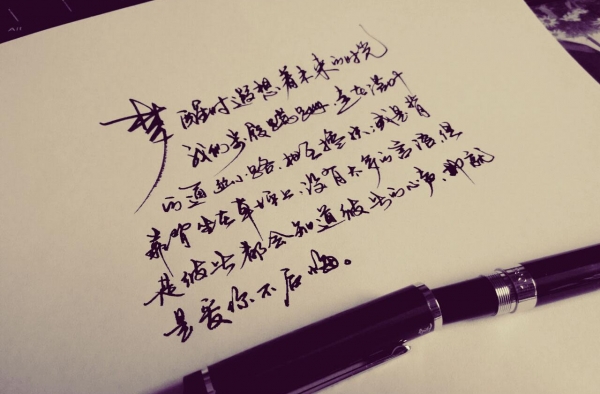 梦醒时遐想着未来的时光
我们步履蹒跚,走在落叶
的通幽小路,相互搀扶,或是背
靠背坐在草坪上,没有太多的言语,但
是彼此都会知道彼此的心声,那就
是爱你不后悔。